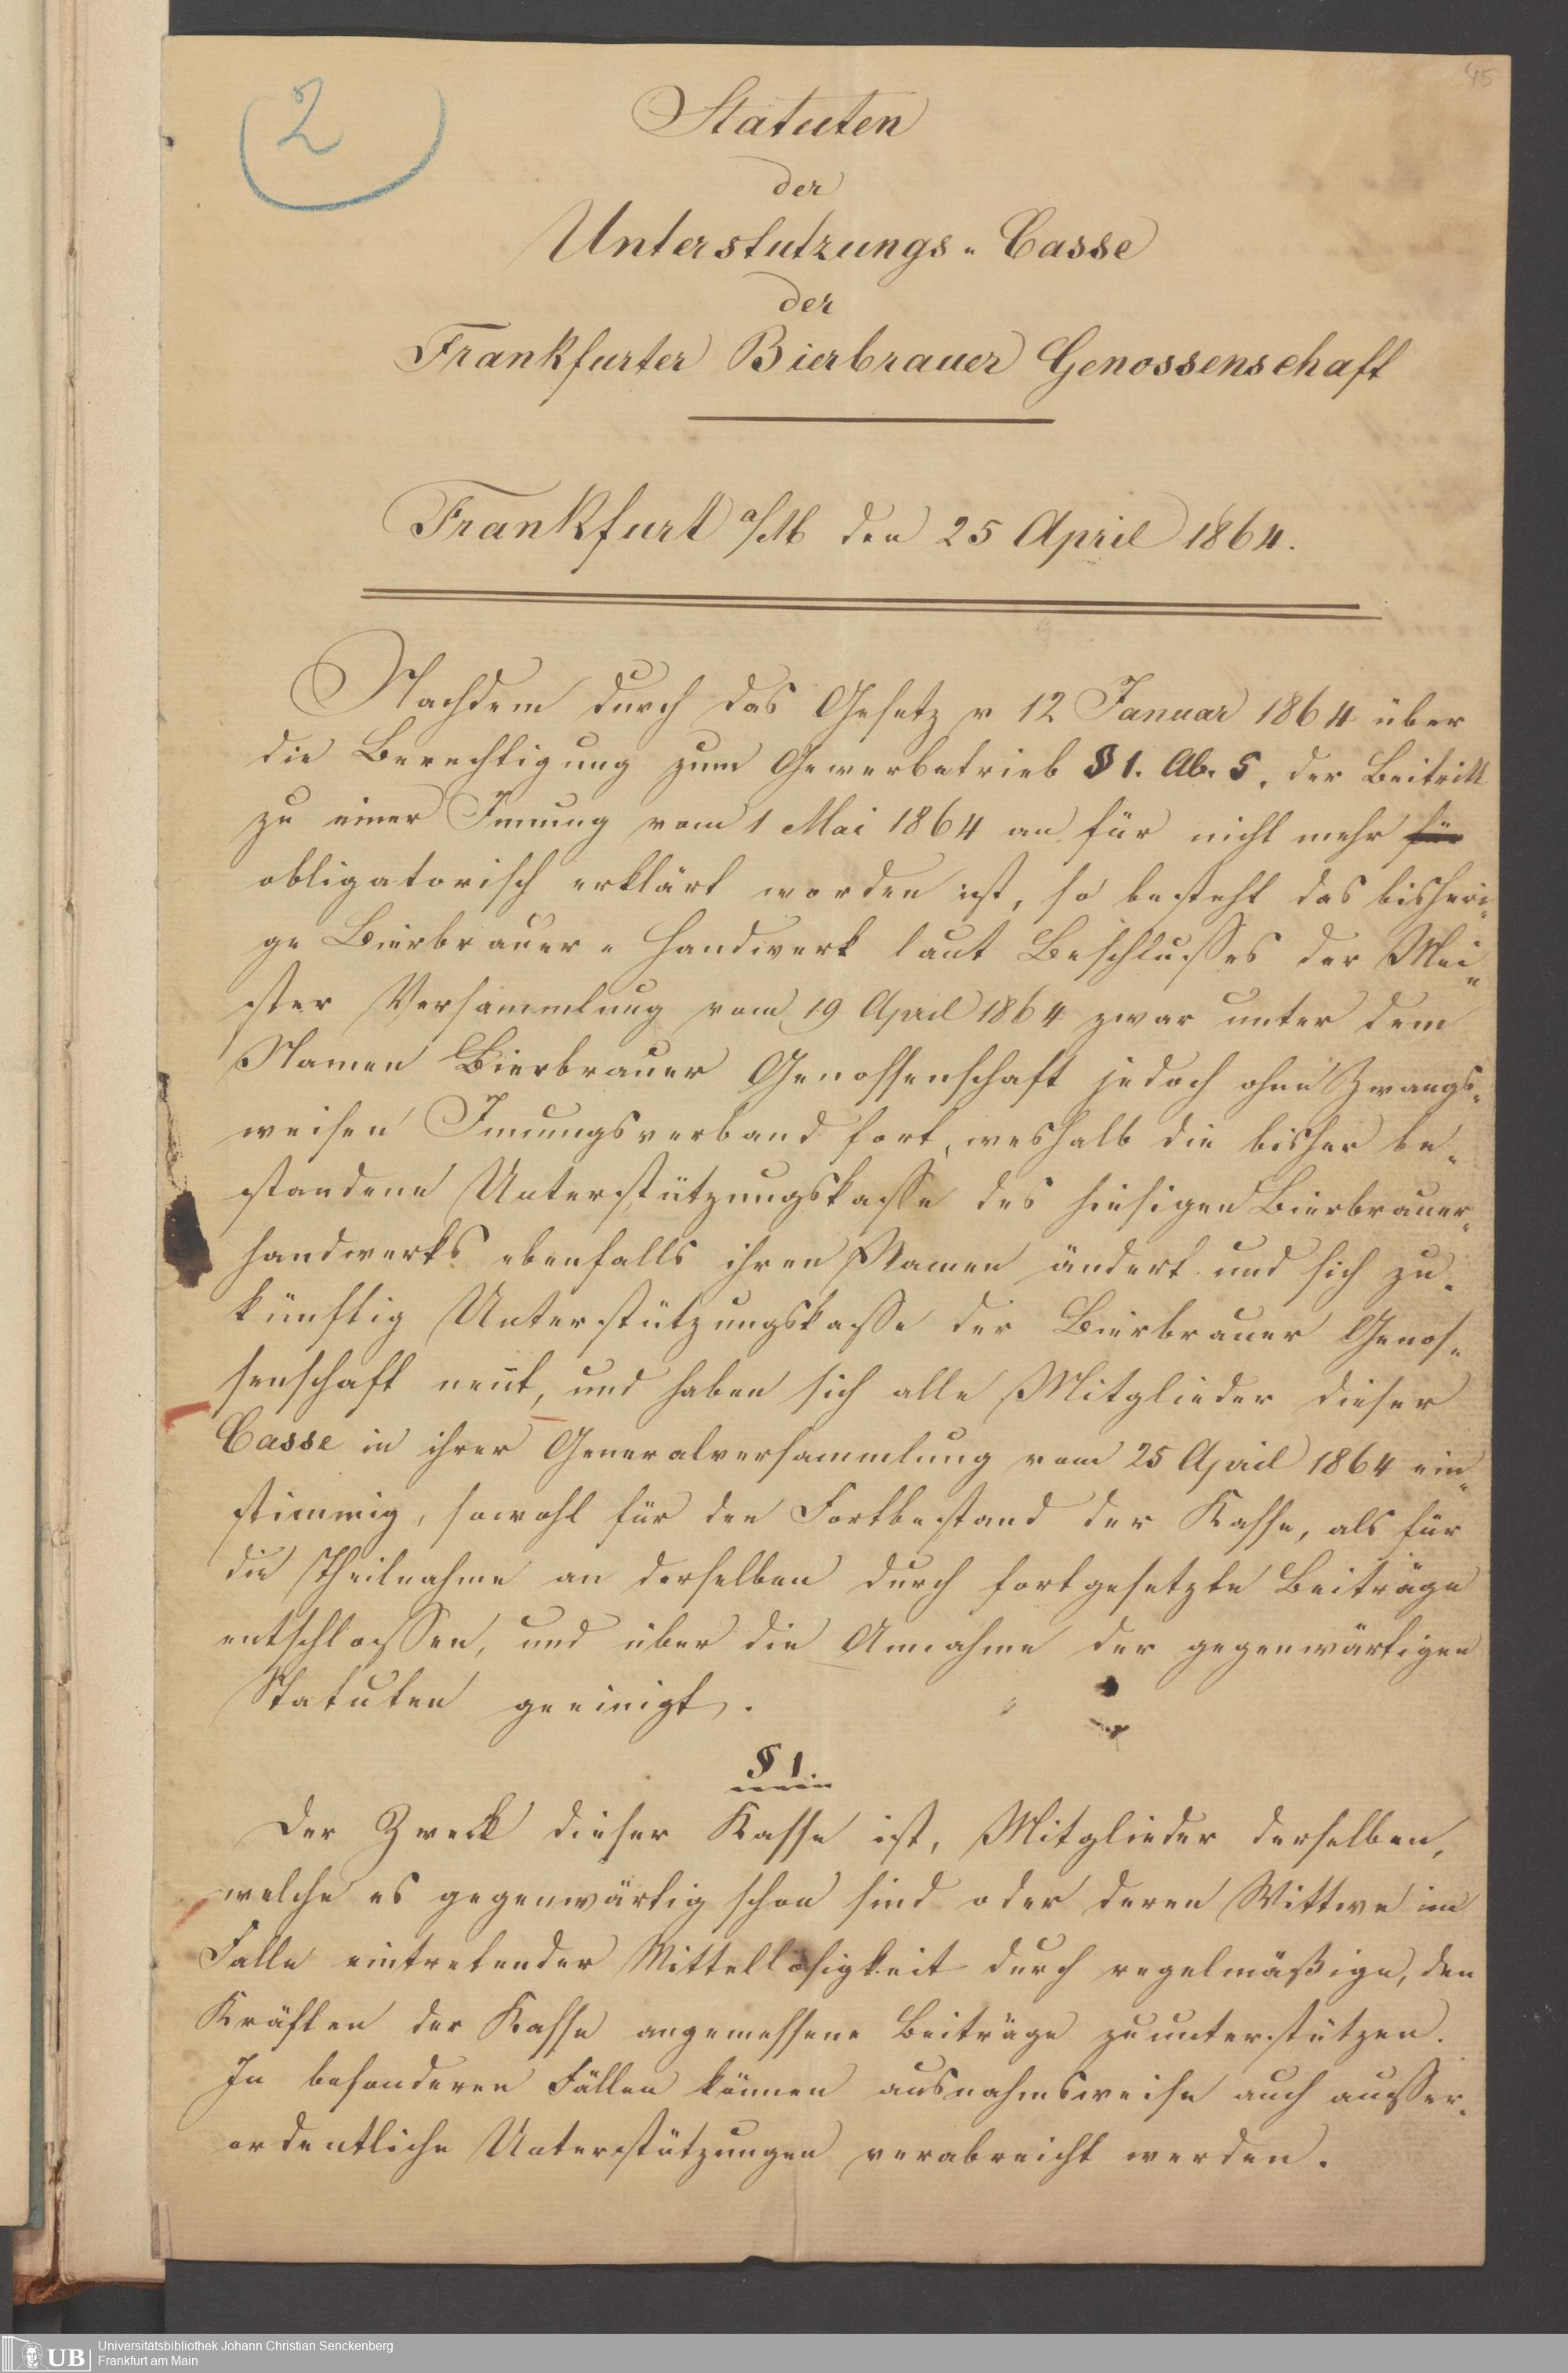 45
2
Statuten
der
Unterstutzungs-Casse
der
Frankfurter Bierbrauer Genossenschaft
Frankfurt a/M den 25 April 1864.
Nachdem durch das Gesetz v 12 Januar 1864 über
die Berechtigung zum Gewerbetrieb § 1. Ab. 5. der Beitritt
zu einer Innung vom 1 Mai 1864 an für nicht mehr für
obligatorisch erklärt worden ist, so besteht das bisheri-
ge Bierbrauer-Handwerk laut Beschlußes der Mei-
ster Versammlung vom 19 April 1864 zwar unter dem
Namen Bierbrauer Genossenschaft jedoch ohne Zwangs-
weisen Innungsverband fort, weshalb die bisher be-
standene Unterstützungskaße des hiesigen Bierbrauer-
handwerks ebenfalls ihren Namen ändert und sich zu-
künftig Unterstützungskaße der Bierbrauer Genos-
senschaft nen̄t, und haben sich alle Mitglieder dieser
Casse in ihrer Generalversammlung vom 25 April 1864 ein-
stimmig, sowohl für den Fortbestand der Kasse, als für
die Theilnahme an derselben durch fortgesetzte Beiträge
entschloßen, und über die Annahme der gegenwärtigen
Statuten geeinigt.
§ 1.
Der Zweck dieser Kasse ist, Mitglieder derselben,
welche es gegenwärtig schon sind oder deren Wittwe im
Falle eintretender Mittellosigkeit durch regelmäßige, den
Kräften der Kasse angemessene Beiträge zu unterstützen.
In besonderen Fällen können ausnahmsweise auch außer-
ordentliche Unterstützungen verabreicht werden.
UB
Universitätsbibliothek Johann Christian Senckenberg
Frankfurt am Main